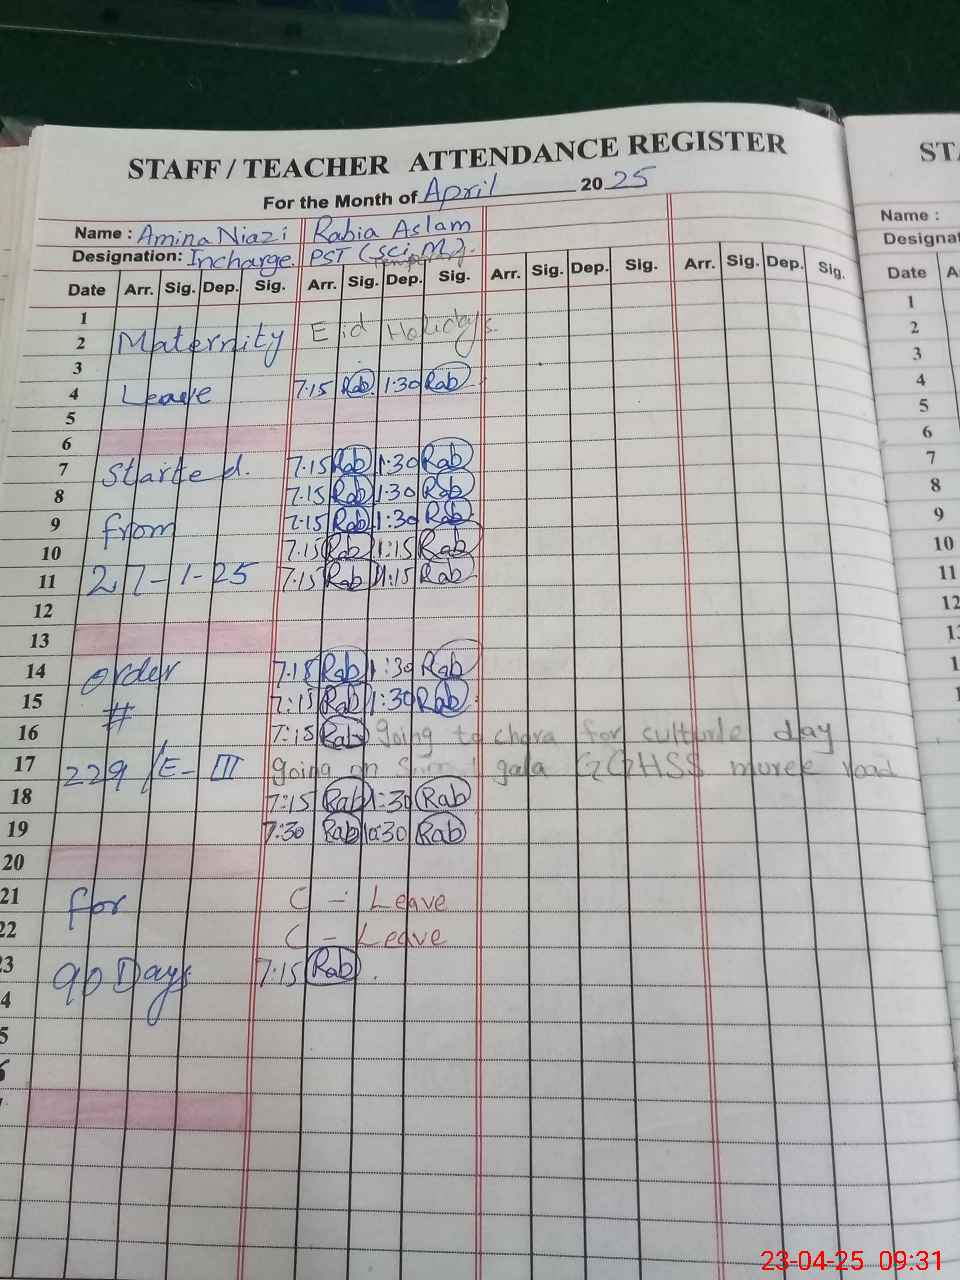 STAFF / TEACHER ATTENDANCE REGISTER
For the Month of April 2025
Name : Amina Niazi Rabia Aslam
Designation: Incharge. PST (Sci, M).
Date Arr. Sig. Dep. Sig. Arr. Sig. Dep. Sig. Arr. Sig. Dep. Sig. Arr. Sig. Dep. Sig.
1
2 Maternity Eid Holidays.
3
4 Leave 7.15 Rab 1:30 Rab
5
6
7 Started. 7.15 Rab 1:30 Rab
8 7.15 Rab 1:30 Rab
9 from 7.15 Rab 1:30 Rab
10 7.15 Rab 1:15 Rab
11 27-1-25 7:15 Rab 1:15 Rab
12
13
14 order 7.15 Rab 1:30 Rab
15 # 7:15 Rab 1:30 Rab
16 7:15 Rab going to chara for culture day
17 229/E-III going on gala GGHSS muree road
18 7:15 Rab 1:30 Rab
19 7:30 Rab 10:30 Rab
20
21 for C - Leave
22 C - Leave
23 90 Days 7.15 Rab
4
5
6
ST
Name :
Designat
Date A
1
2
3
4
5
6
7
8
9
10
11
12
13
1
1
23-04-25 09:31